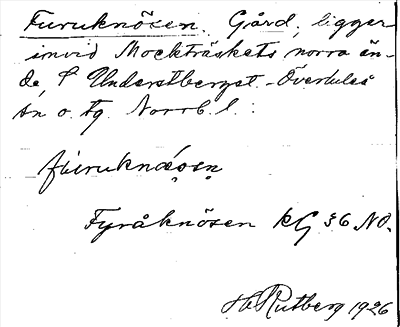 Furuknösen. Gård, ligger
invid Mockträskets norra än-
de, S Understberget. Överluleå
sn o. tg. Norrb. l.
furuknœosn
Fyråknösen kG 36 NO.
H. Rutberg 1926